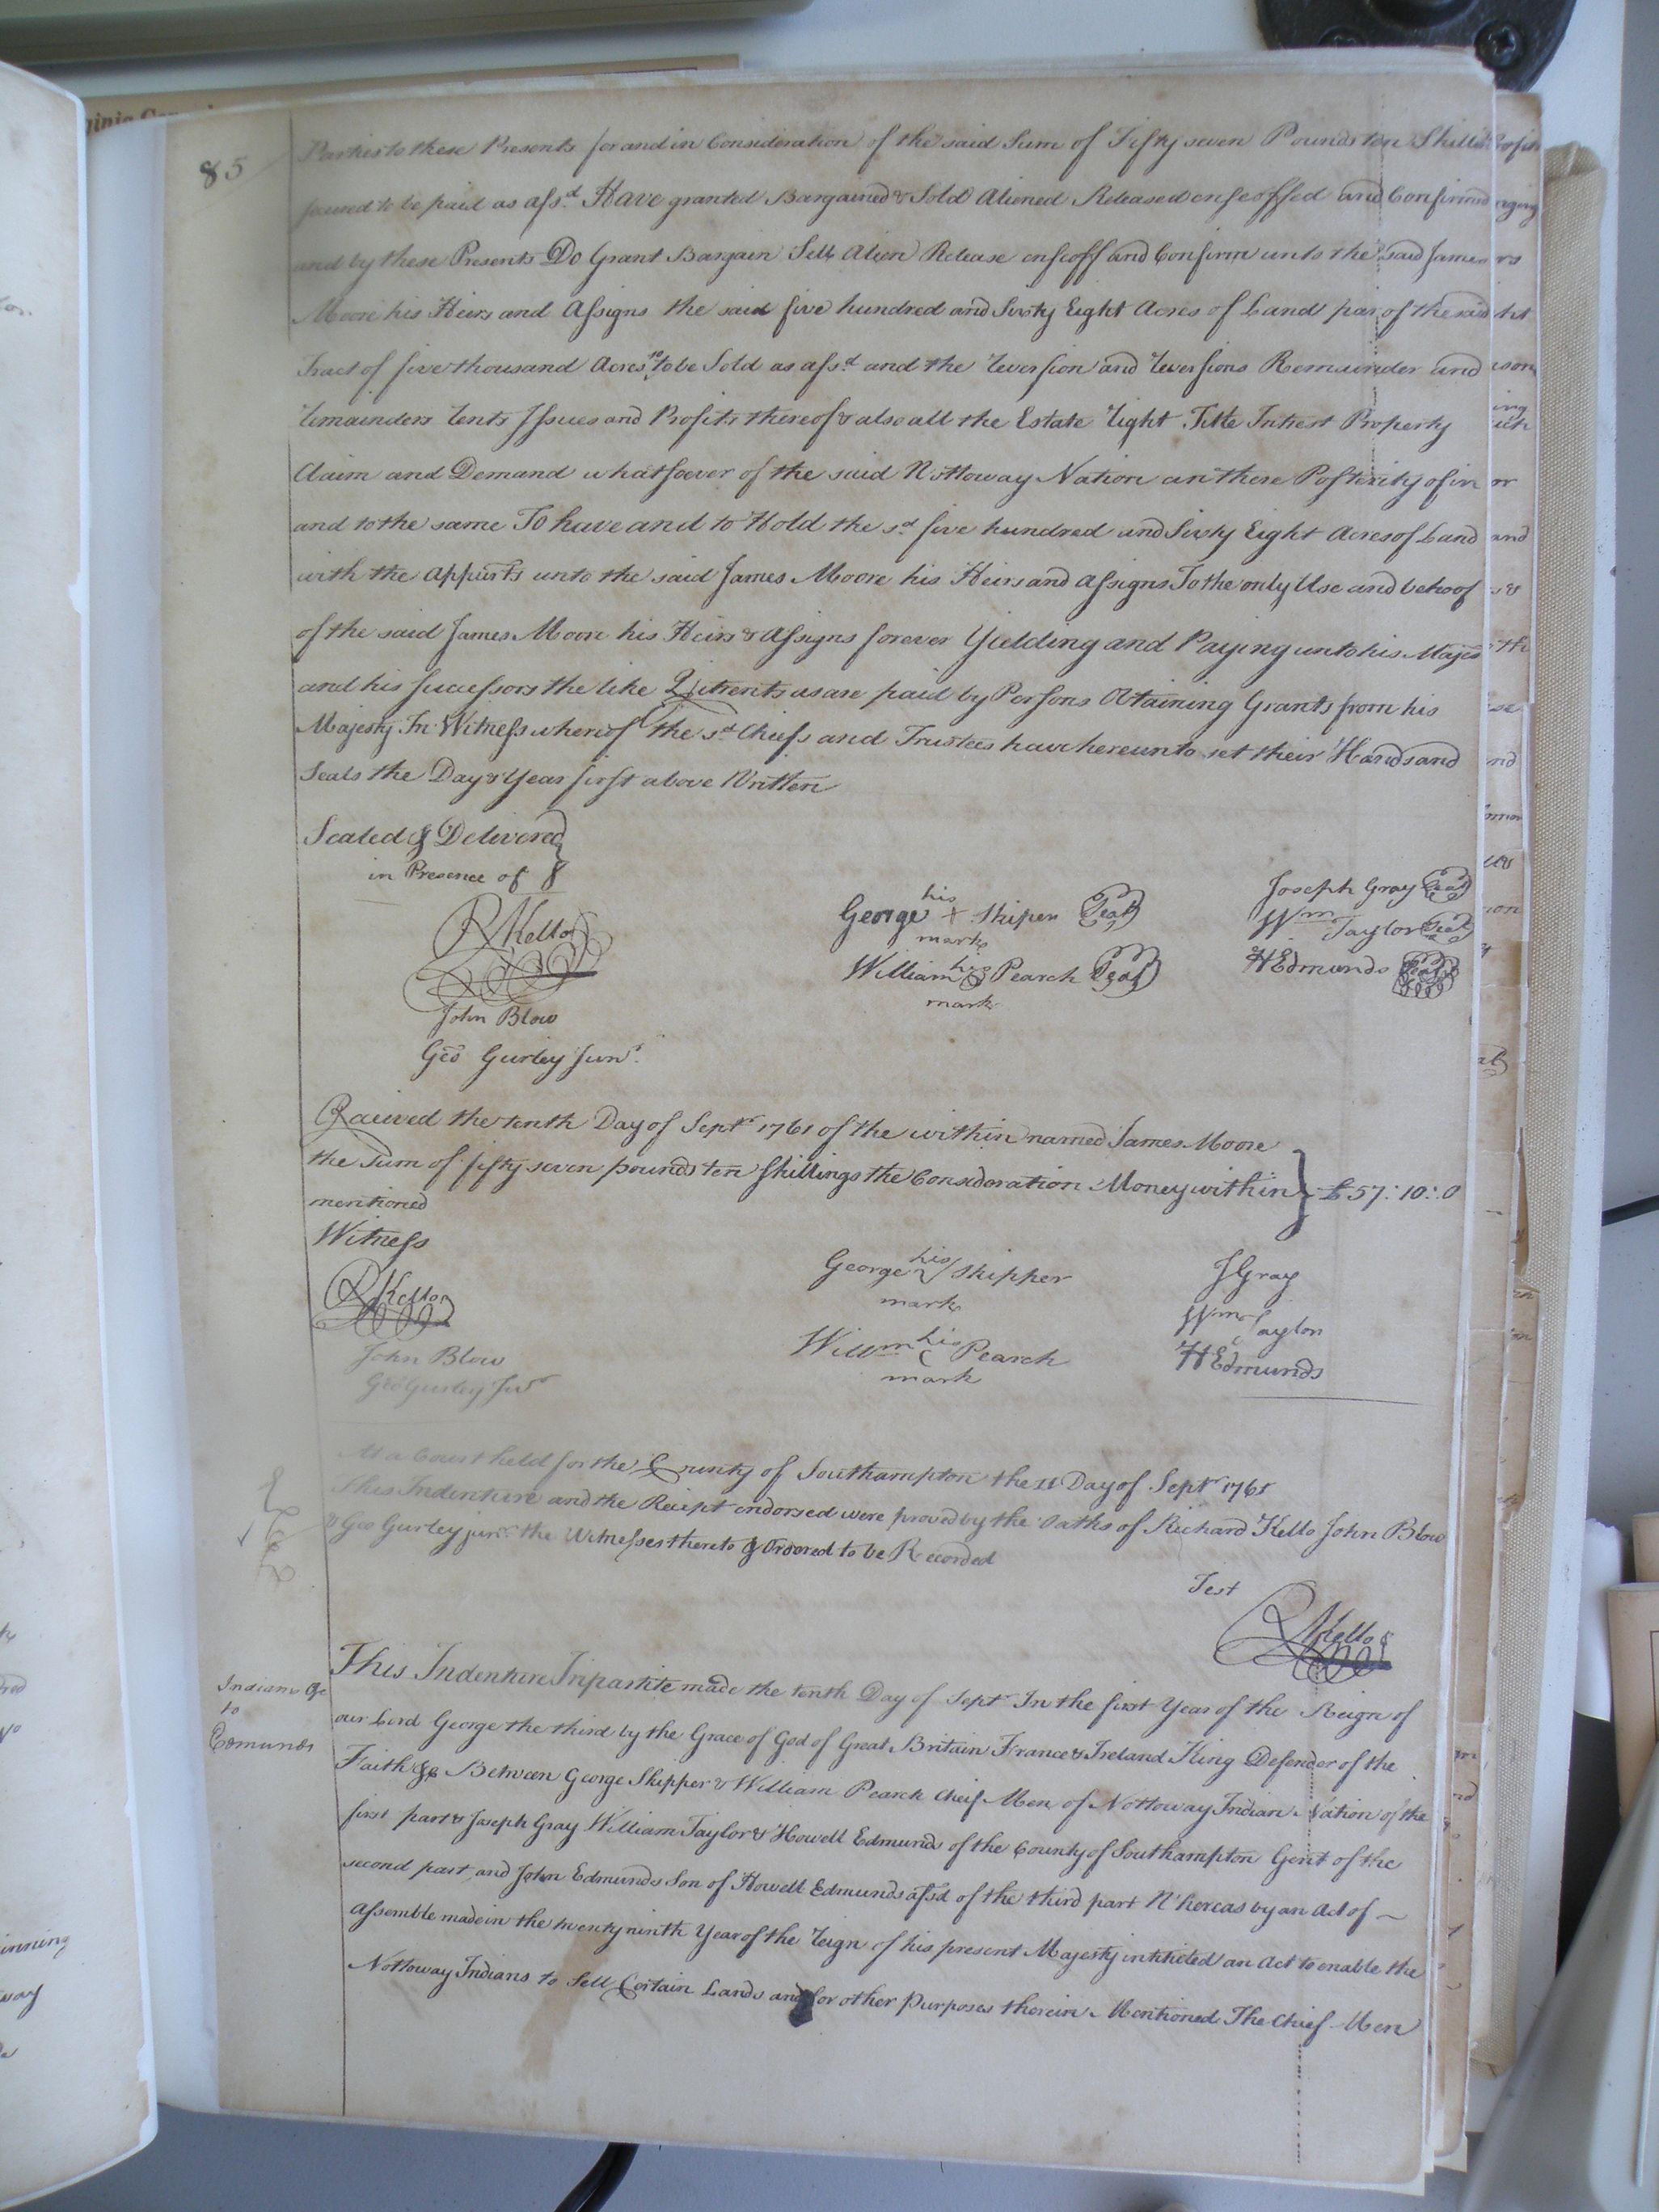 85
Parties to these Presents for and in Consideration of the said Sum of Fifty seven Pounds ten Shill
secured to be paid as afs.d Have granted Bargained & Sold Aliened Released enfeoffed and Confirmed
and by these Presents Do Grant Bargain Sell Alien Release enfeoff and Confirm unto the said James
Moore his Heirs and Assigns the said five hundred and Sixty Eight Acres of Land part of the said
Tract of five thousand Acres to be Sold as afs.d and the reversion and reversions Remainder and
remainders rents Issues and Profits thereof & also all the Estate right Title Intrest Property
Claim and Demand whatsoever of the said Nottoway Nation an there Posterity of in
and to the same To have and to Hold the s.d five hundred and Sixty Eight Acres of Land
with the Appurts unto the said James Moore his Heirs and Assigns To the only Use and behoof
of the said James Moore his Heirs & Assigns forever Yielding and Paying unto his Majes
and his Successors the like Quitrents as are paid by Persons Obtaining Grants from his
Majesty In Witness whereof the s.d Chiefs and Trustees have hereunto set their Hands and
Seals the Day & Year first above Written
Sealed & Delivered
in Presence of
R Kello
John Blow
Geo Gurley Junr.
George his + Skiper Seal
mark
William his Pearch Seal
mark
Joseph Gray Seal
Wm Taylor Seal
H Edmunds Seal
Raceived the tenth Day of Septr 1761 of the within named James Moore
the Sum of fifty seven pounds ten Shillings the Consideration Money within £57:10:0
mentioned
Witness
R Kello
John Blow
Geo Gurley Junr
George his Skipper
mark
Willm his Pearch
mark
J Gray
Wm Taylor
H Edmunds
At a Court held for the County of Southampton the 11 Day of Septr 1761
This Indenture and the Reciept endorsed were proved by the Oaths of Richard Kello John Blow
& Geo Gurley junr. the Witnesses thereto & Ordered to be Recorded
Test
R Kello
Indians &c
to
Edmunds
This Indenture Tripartite made the tenth Day of Septr In the first Year of the Reign of
our Lord George the third by the Grace of God of Great Britain France & Ireland King Defender of the
Faith &c Between George Skipper & William Pearch Cheif Men of Nottoway Indian Nation of the
first part & Joseph Gray William Taylor & Howell Edmunds of the County of Southampton Gent of the
second part and John Edmunds Son of Howell Edmunds afsd of the third part Whereas by an Act of
Assemble made in the twenty ninth Year of the reign of his present Majesty intituled an Act to enable the
Nottoway Indians to Sell Certain Lands and for other Purposes therein Mentioned The Chief Men